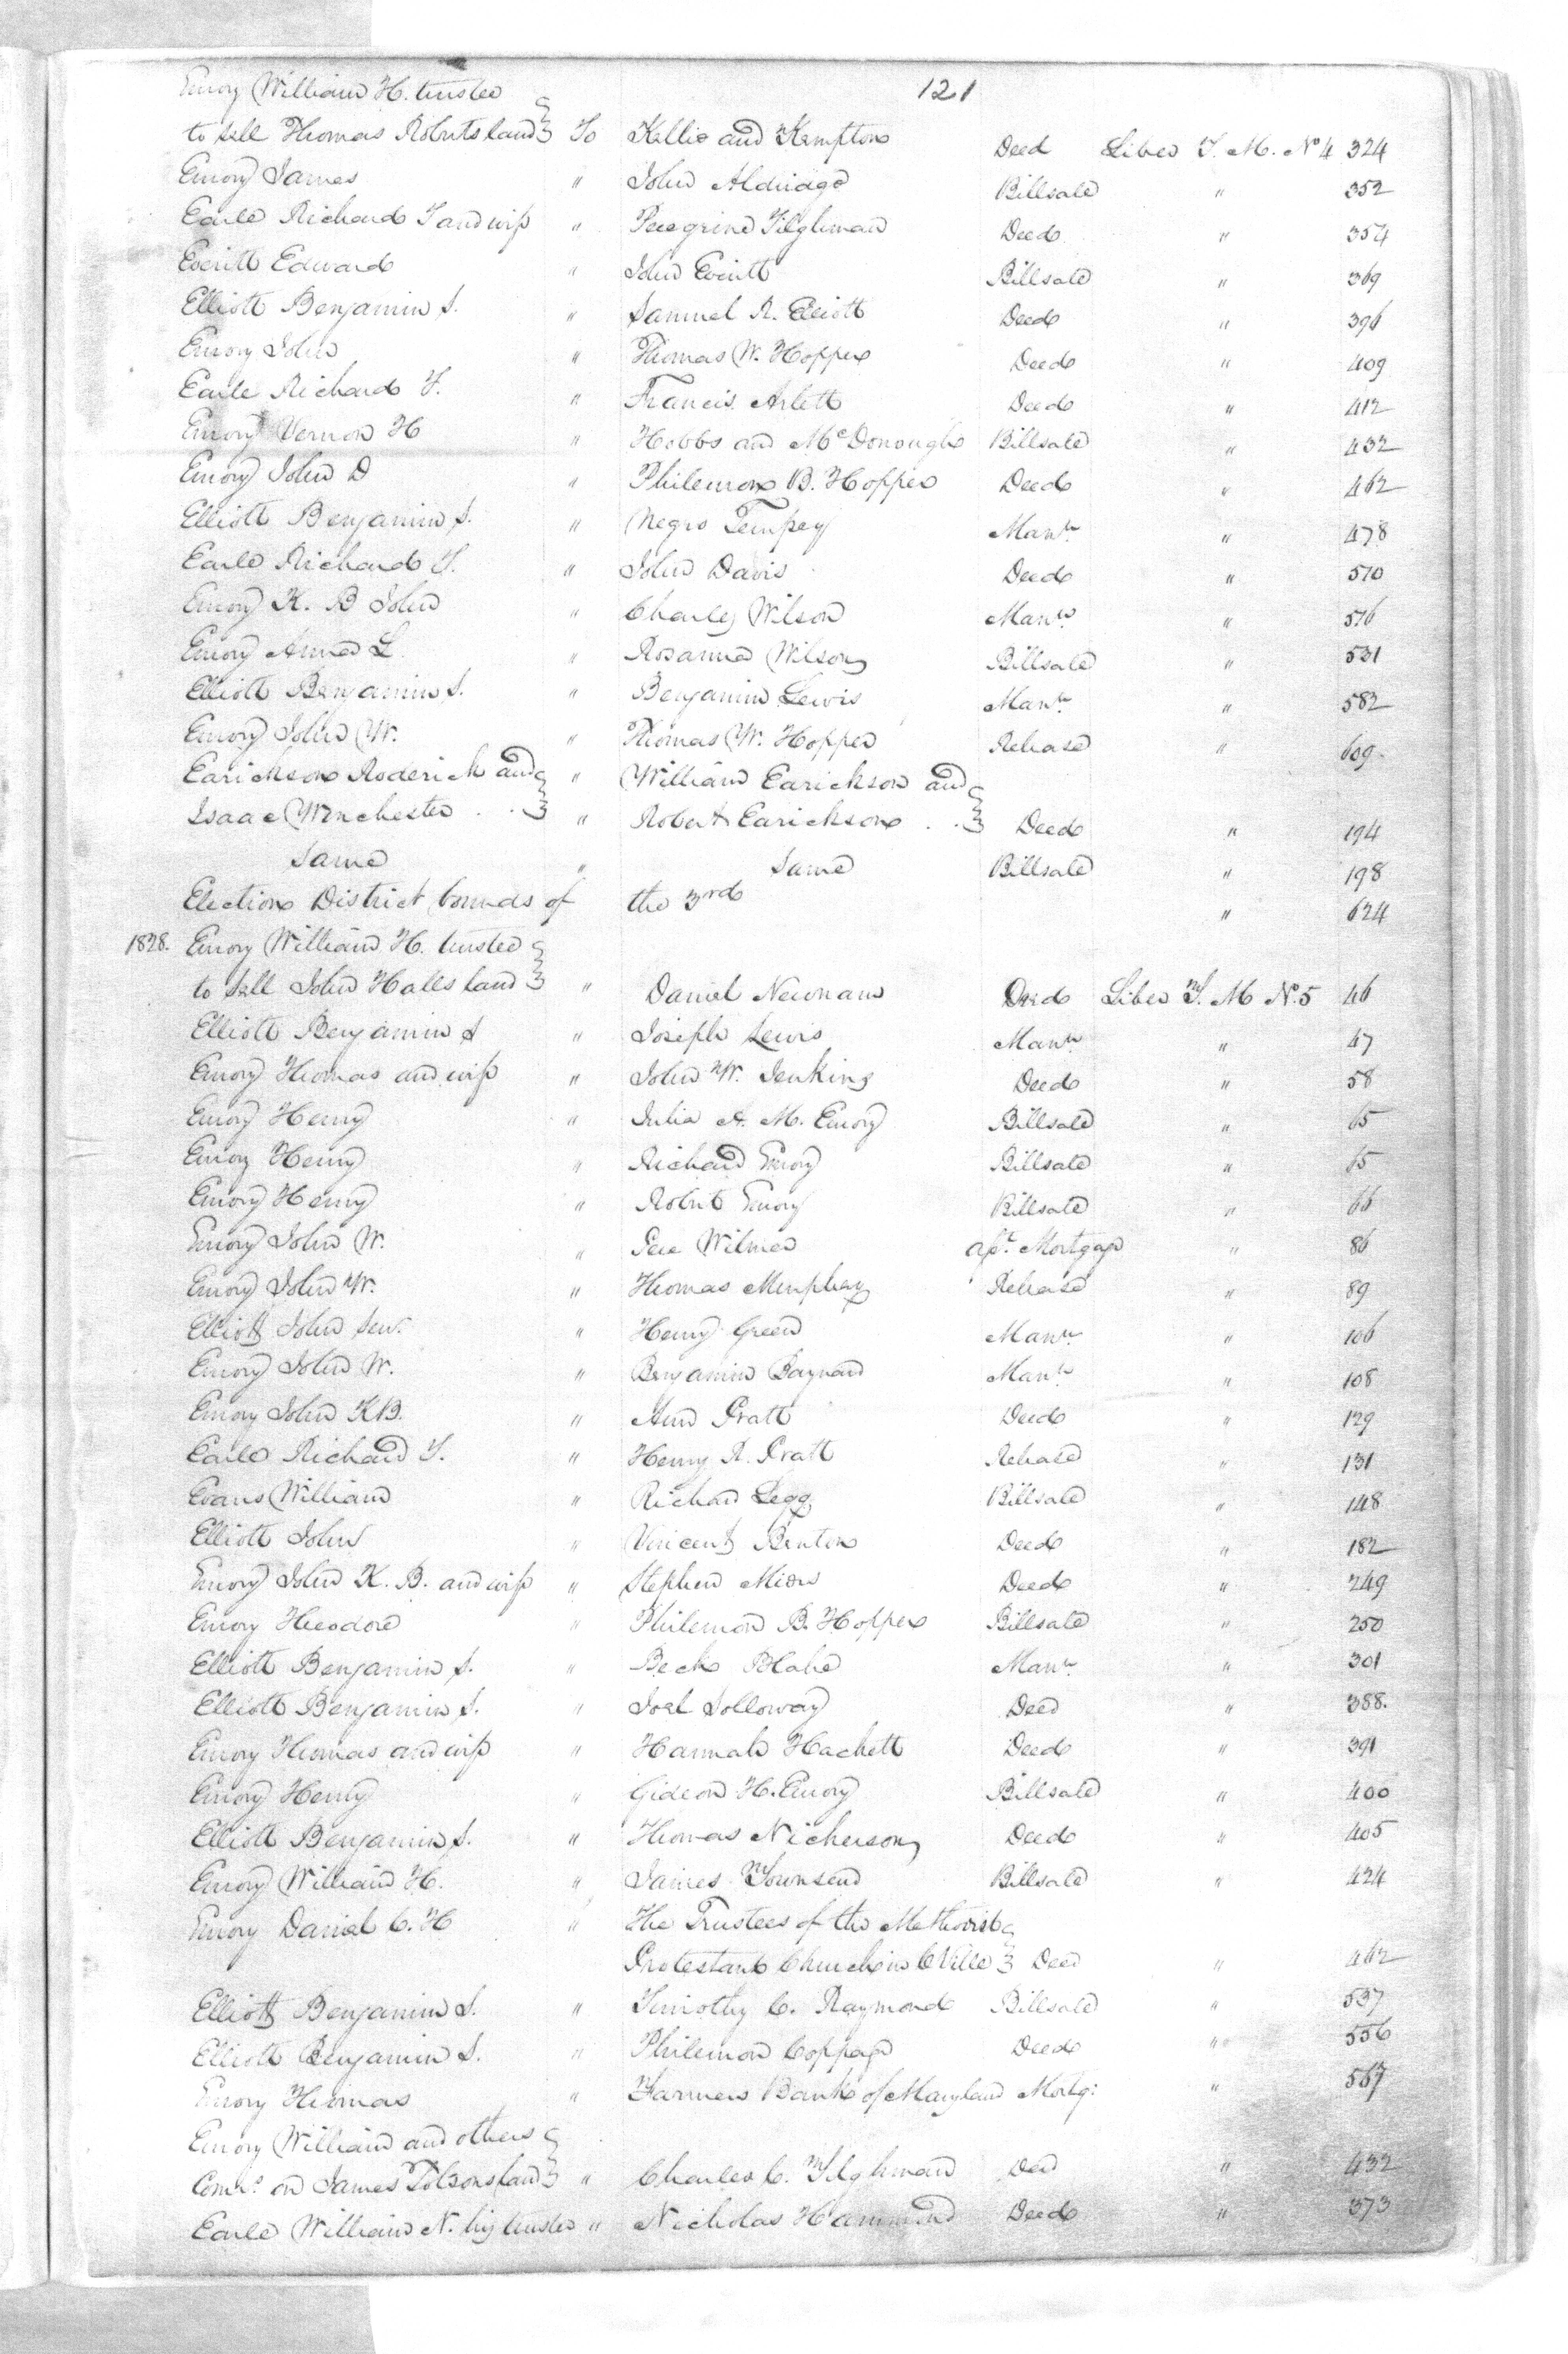 121
Emory William H. trustee
to sell Thomas Roberts land } To Kellie and Kempton Deed Liber T. M. No 4 324
Emory James " John Aldridge Billsale " 352
Earle Richard T and wife " Peregrine Tilghman Deed " 354
Everitt Edward " John Everitt Billsale " 369
Elliott Benjamin S. " Samuel R. Elliott Deed " 396
Emory John " Thomas W. Hopper Deed " 409
Earle Richard T. " Francis Arlett Deed " 412
Emory Vernon H " Hobbs and McDonough Billsale " 432
Emory John D " Philemon B. Hopper Deed " 462
Elliott Benjamin S. " Negro Tempey Mann. " 478
Earle Richard T. " John Davis Deed " 510
Emory K. B John " Charles Wilson Mann. " 516
Emory Anna L. " Rosanna Wilson Billsale " 531
Elliott Benjamin S. " Benjamin Lewis Mann. " 582
Emory John W. " Thomas W. Hopper Release " 609.
Earickson Roderick and } " William Earickson and }
Isaac Winchester . . } " Robert Earickson . . } Deed " 194
Same " Same Billsale " 198
Election District bounds of the 3rd " 624
1828. Emory William H. trustee }
to sell John Halls land } " Daniel Newnam Deed Liber T. M No. 5 46
Elliott Benjamin S " Joseph Lewis Mann. " 47
Emory Thomas and wife " John W. Jenkins Deed " 58
Emory Henry " Julia A. M. Emory Billsale " 65
Emory Henry " Richard Emory Billsale " 65
Emory Henry " Robert Emory Billsale " 66
Emory John W. " Pere Wilmer Mortgage " 86
Emory John W. " Thomas Murphey Release " 89
Elliott John Sen. " Henry Green Mann. " 106
Emory John W. " Benjamin Baynard Mann. " 108
Emory John KB. " Ann Pratt Deed " 129
Earle Richard T. " Henry R. Pratt Release " 131
Evans William " Richard Legg Billsale " 148
Elliott John " Vincent Benton Deed " 182
Emory John K. B. and wife " Stephen Deed " 249
Emory Theodore " Philemon B. Hopper Billsale " 250
Elliott Benjamin S. " Beck Blake Mann. " 301
Elliott Benjamin S. " Joel Solloway Deed " 388.
Emory Thomas and wife " Hannah Hackett Deed " 391
Emory Henry " Gideon H. Emory Billsale " 400
Elliott Benjamin S. " Thomas Nickerson Deed " 405
Emory William H. " James Townsend Billsale " 424
Emory Daniel C. H " The Trustees of the Methodist }
Protestant Church in CVille } Deed " 462
Elliott Benjamin S. " Timothy C. Raymond Billsale " 537
Elliott Benjamin S. " Philemon Coppage Deed " 556
Emory Thomas " Farmers Bank of Maryland Mortg: " 567
Emory William and others }
Coms. on James Tolsons land } " Charles C. Tilghman Deed " 432
Earle William N. by trustee " Nicholas Hammond Deed " 373